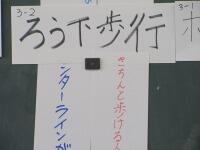 3-2
ろう下歩行
3-1
ホ
きちんと歩ける
ンターラインが